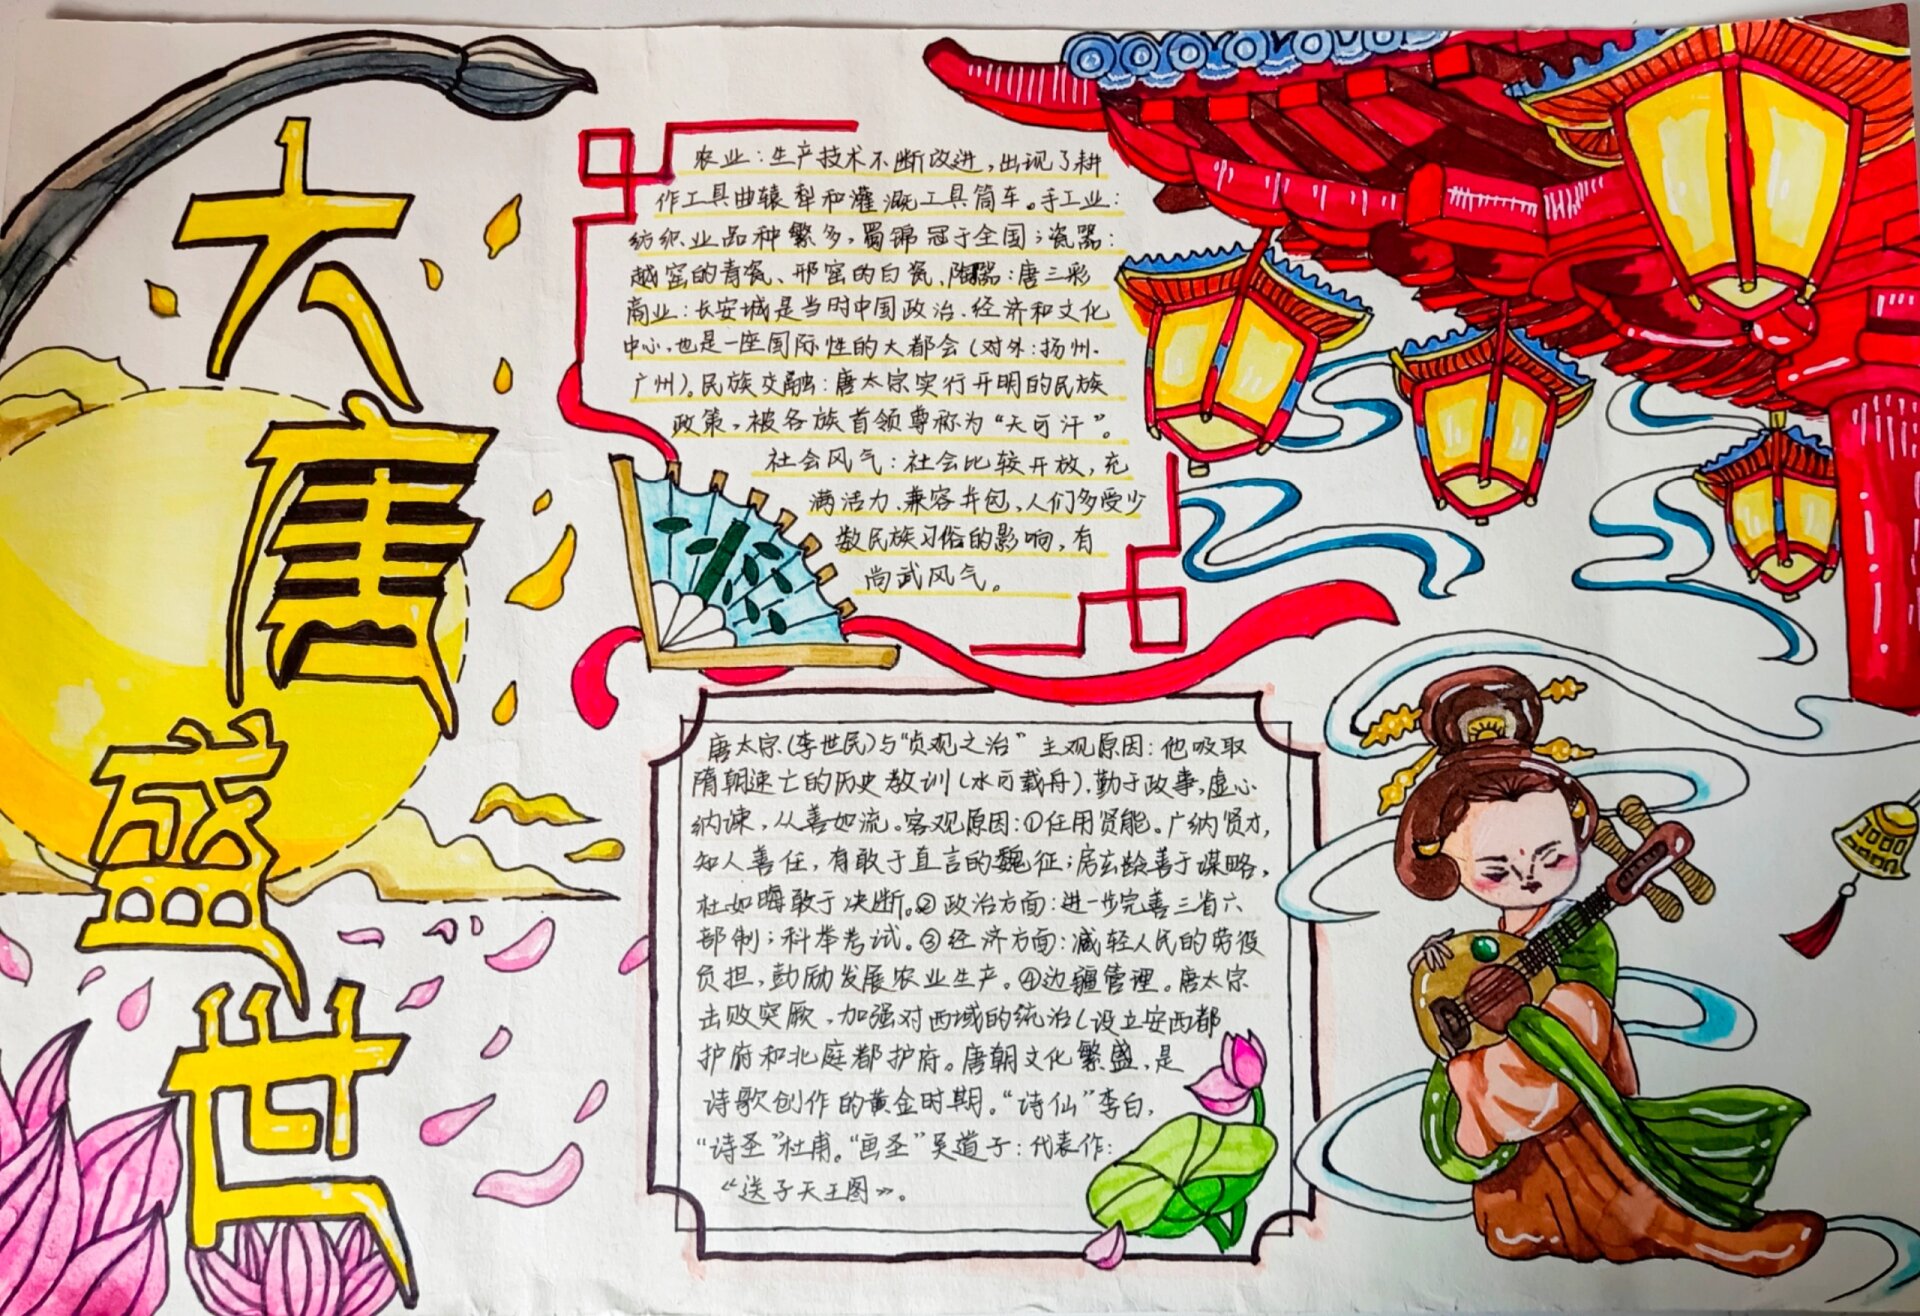 大唐盛世
农业：生产技术不断改进，出现了耕
作工具曲辕犁和灌溉工具筒车。手工业：
纺织业品种繁多，蜀锦冠于全国；瓷器：
越窑的青瓷、邢窑的白瓷、陶器：唐三彩
商业：长安城是当时中国政治、经济和文化
中心，也是一座国际性的大都会（对外：扬州、
广州）。民族交融：唐太宗实行开明的民族
政策，被各族首领尊称为“天可汗”。
社会风气：社会比较开放，充
满活力、兼容并包，人们多受少
数民族习俗的影响，有
尚武风气。
唐太宗（李世民）与“贞观之治” 主观原因：他吸取
隋朝速亡的历史教训（水可载舟），勤于政事，虚心
纳谏，从善如流。客观原因：①任用贤能。广纳贤才，
知人善任，有敢于直言的魏征；房玄龄善于谋略，
杜如晦敢于决断。②政治方面：进一步完善三省六
部制；科举考试。③经济方面：减轻人民的劳役
负担，鼓励发展农业生产。④边疆管理。唐太宗
击败突厥，加强对西域的统治（设立安西都
护府和北庭都护府。唐朝文化繁盛，是
诗歌创作的黄金时期。“诗仙”李白，
“诗圣”杜甫。“画圣”吴道子：代表作：
《送子天王图》。